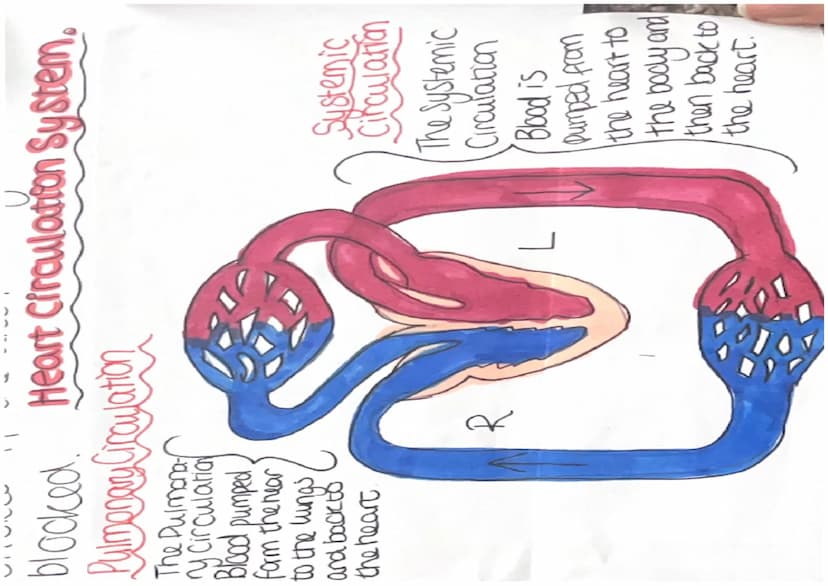 blocked.
Heart Circulation System.
Pulmonary Circulation
The Pulmona-
ry Circulation
Blood pumped
form the hear
to the lungs
and back to
the heart.
Systemic
Circulation
The Systemic
Circulation
Blood is
pumped from
the heart to
the body and
then back to
the heart.
R
L